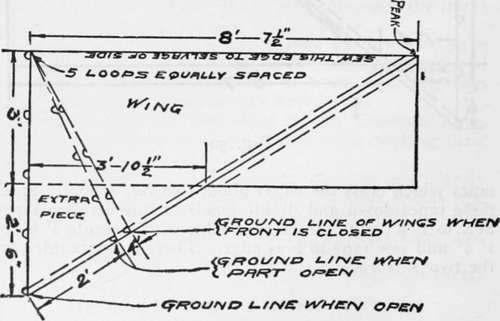 PEAK
8'-7½"
SEW THIS EDGE TO SELVAGE OF SIDE
5 LOOPS EQUALLY SPACED
WING
3'
3'-10½"
EXTRA
PIECE
2'-6"
GROUND LINE OF WINGS WHEN
FRONT IS CLOSED
GROUND LINE WHEN
PART OPEN
2'
GROUND LINE WHEN OPEN